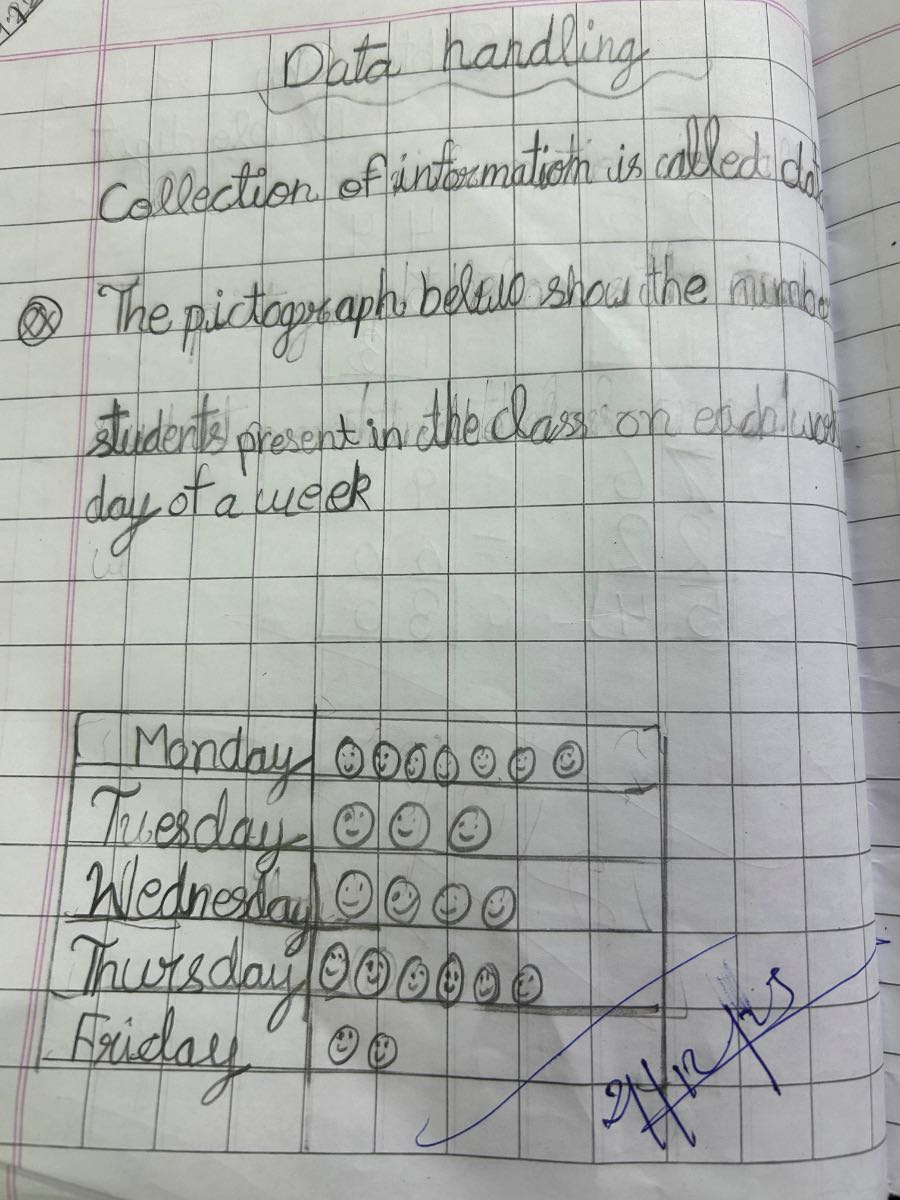 Data handling
Collection of information is called dat
The pictograph belwo show the numbe
students present in the class on each wor
day of a week
Monday
Tuesday
Wednesday
Thursday
Friday